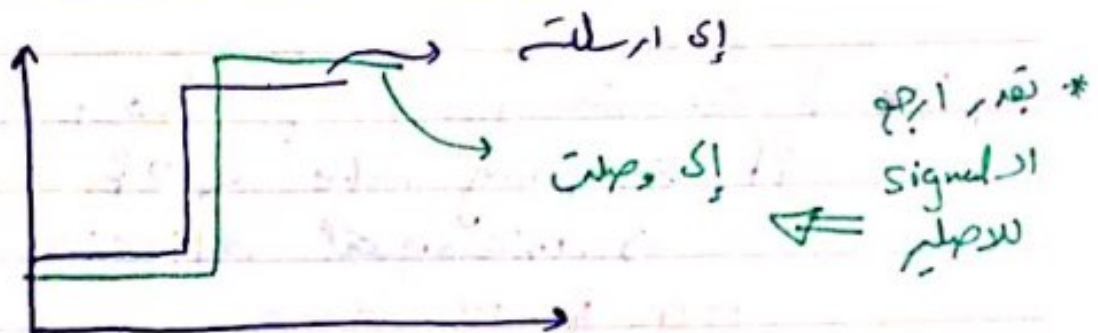 إلى ارسلته
إلى وصلت
* بقدر ارجع
الـ signal
للاصلي